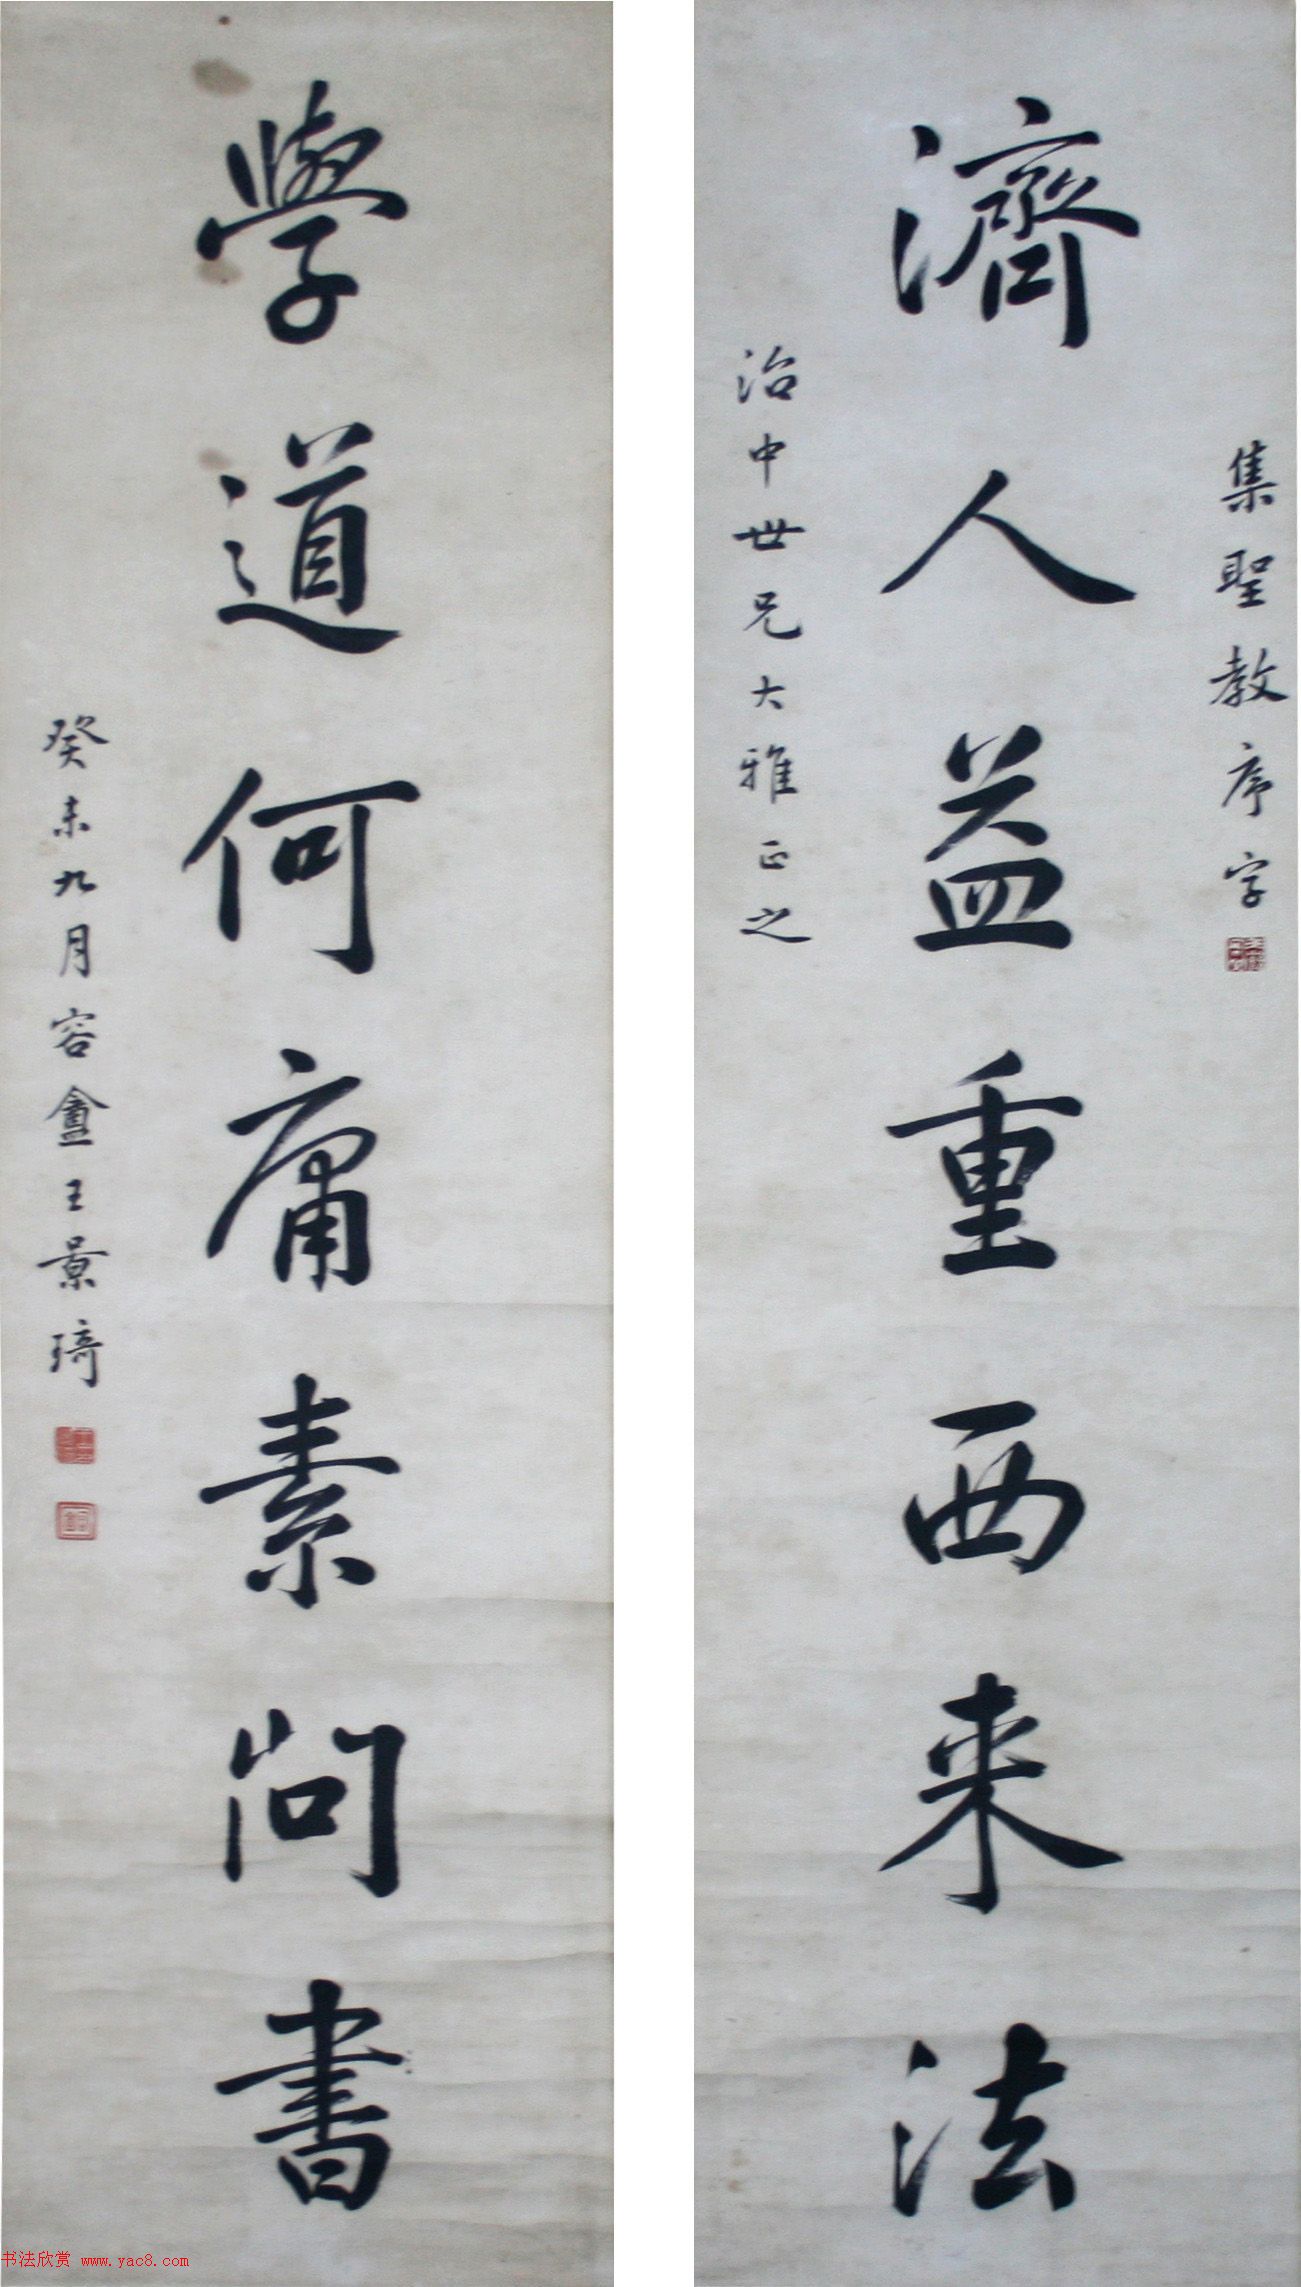 集聖教序字
濟人益重西来法
治中世兄大雅正之
學道何庸素問書
癸未九月容盦王景琦
书法欣赏 www.yac8.com